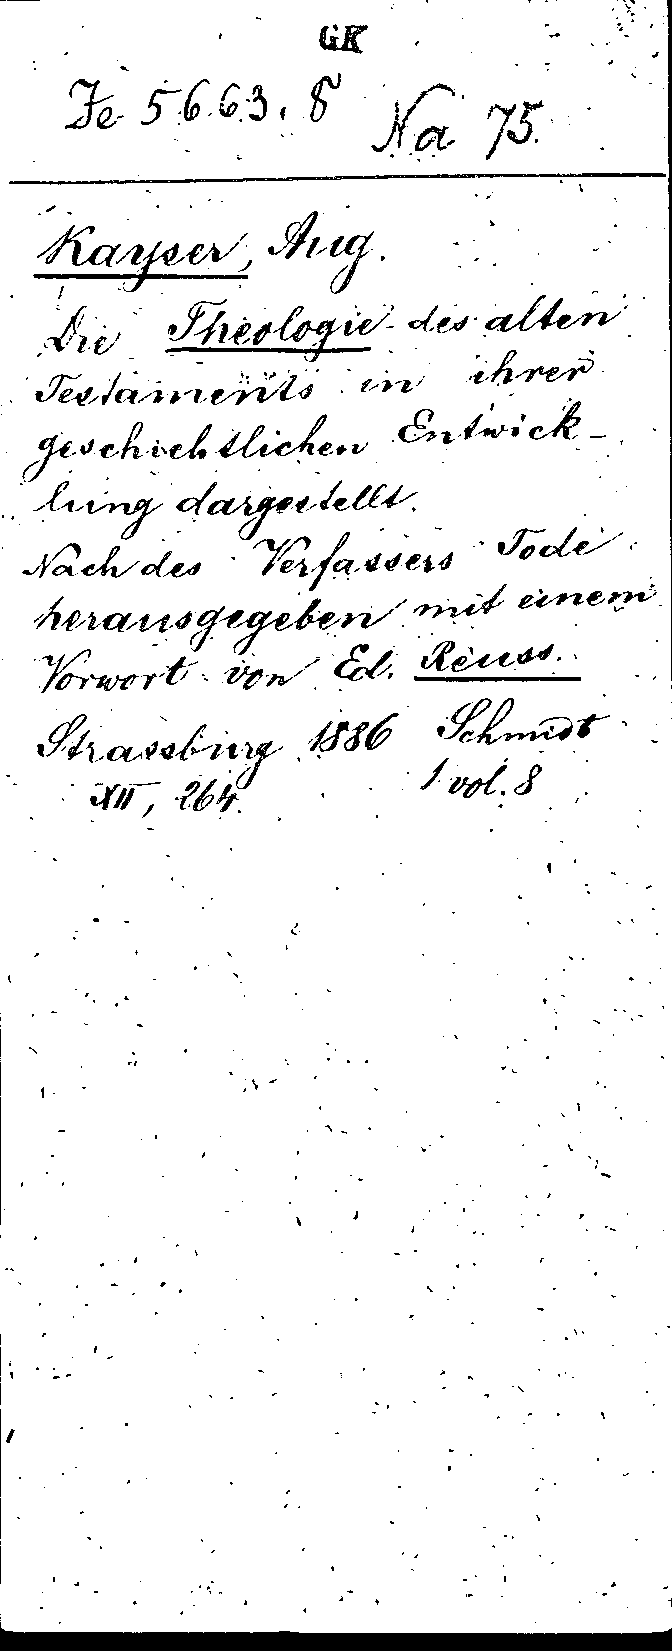 GK
Fe 5663.8 Na 75.
Kayser, Aug.
Die Theologie des alten
Testaments in ihrer
geschichtlichen Entwick-
lung dargestellt.
Nach des Verfassers Tode
herausgegeben mit einem
Vorwort von Ed. Reuss.
Strassburg 1886 Schmidt
XII, 264. 1 vol. 8